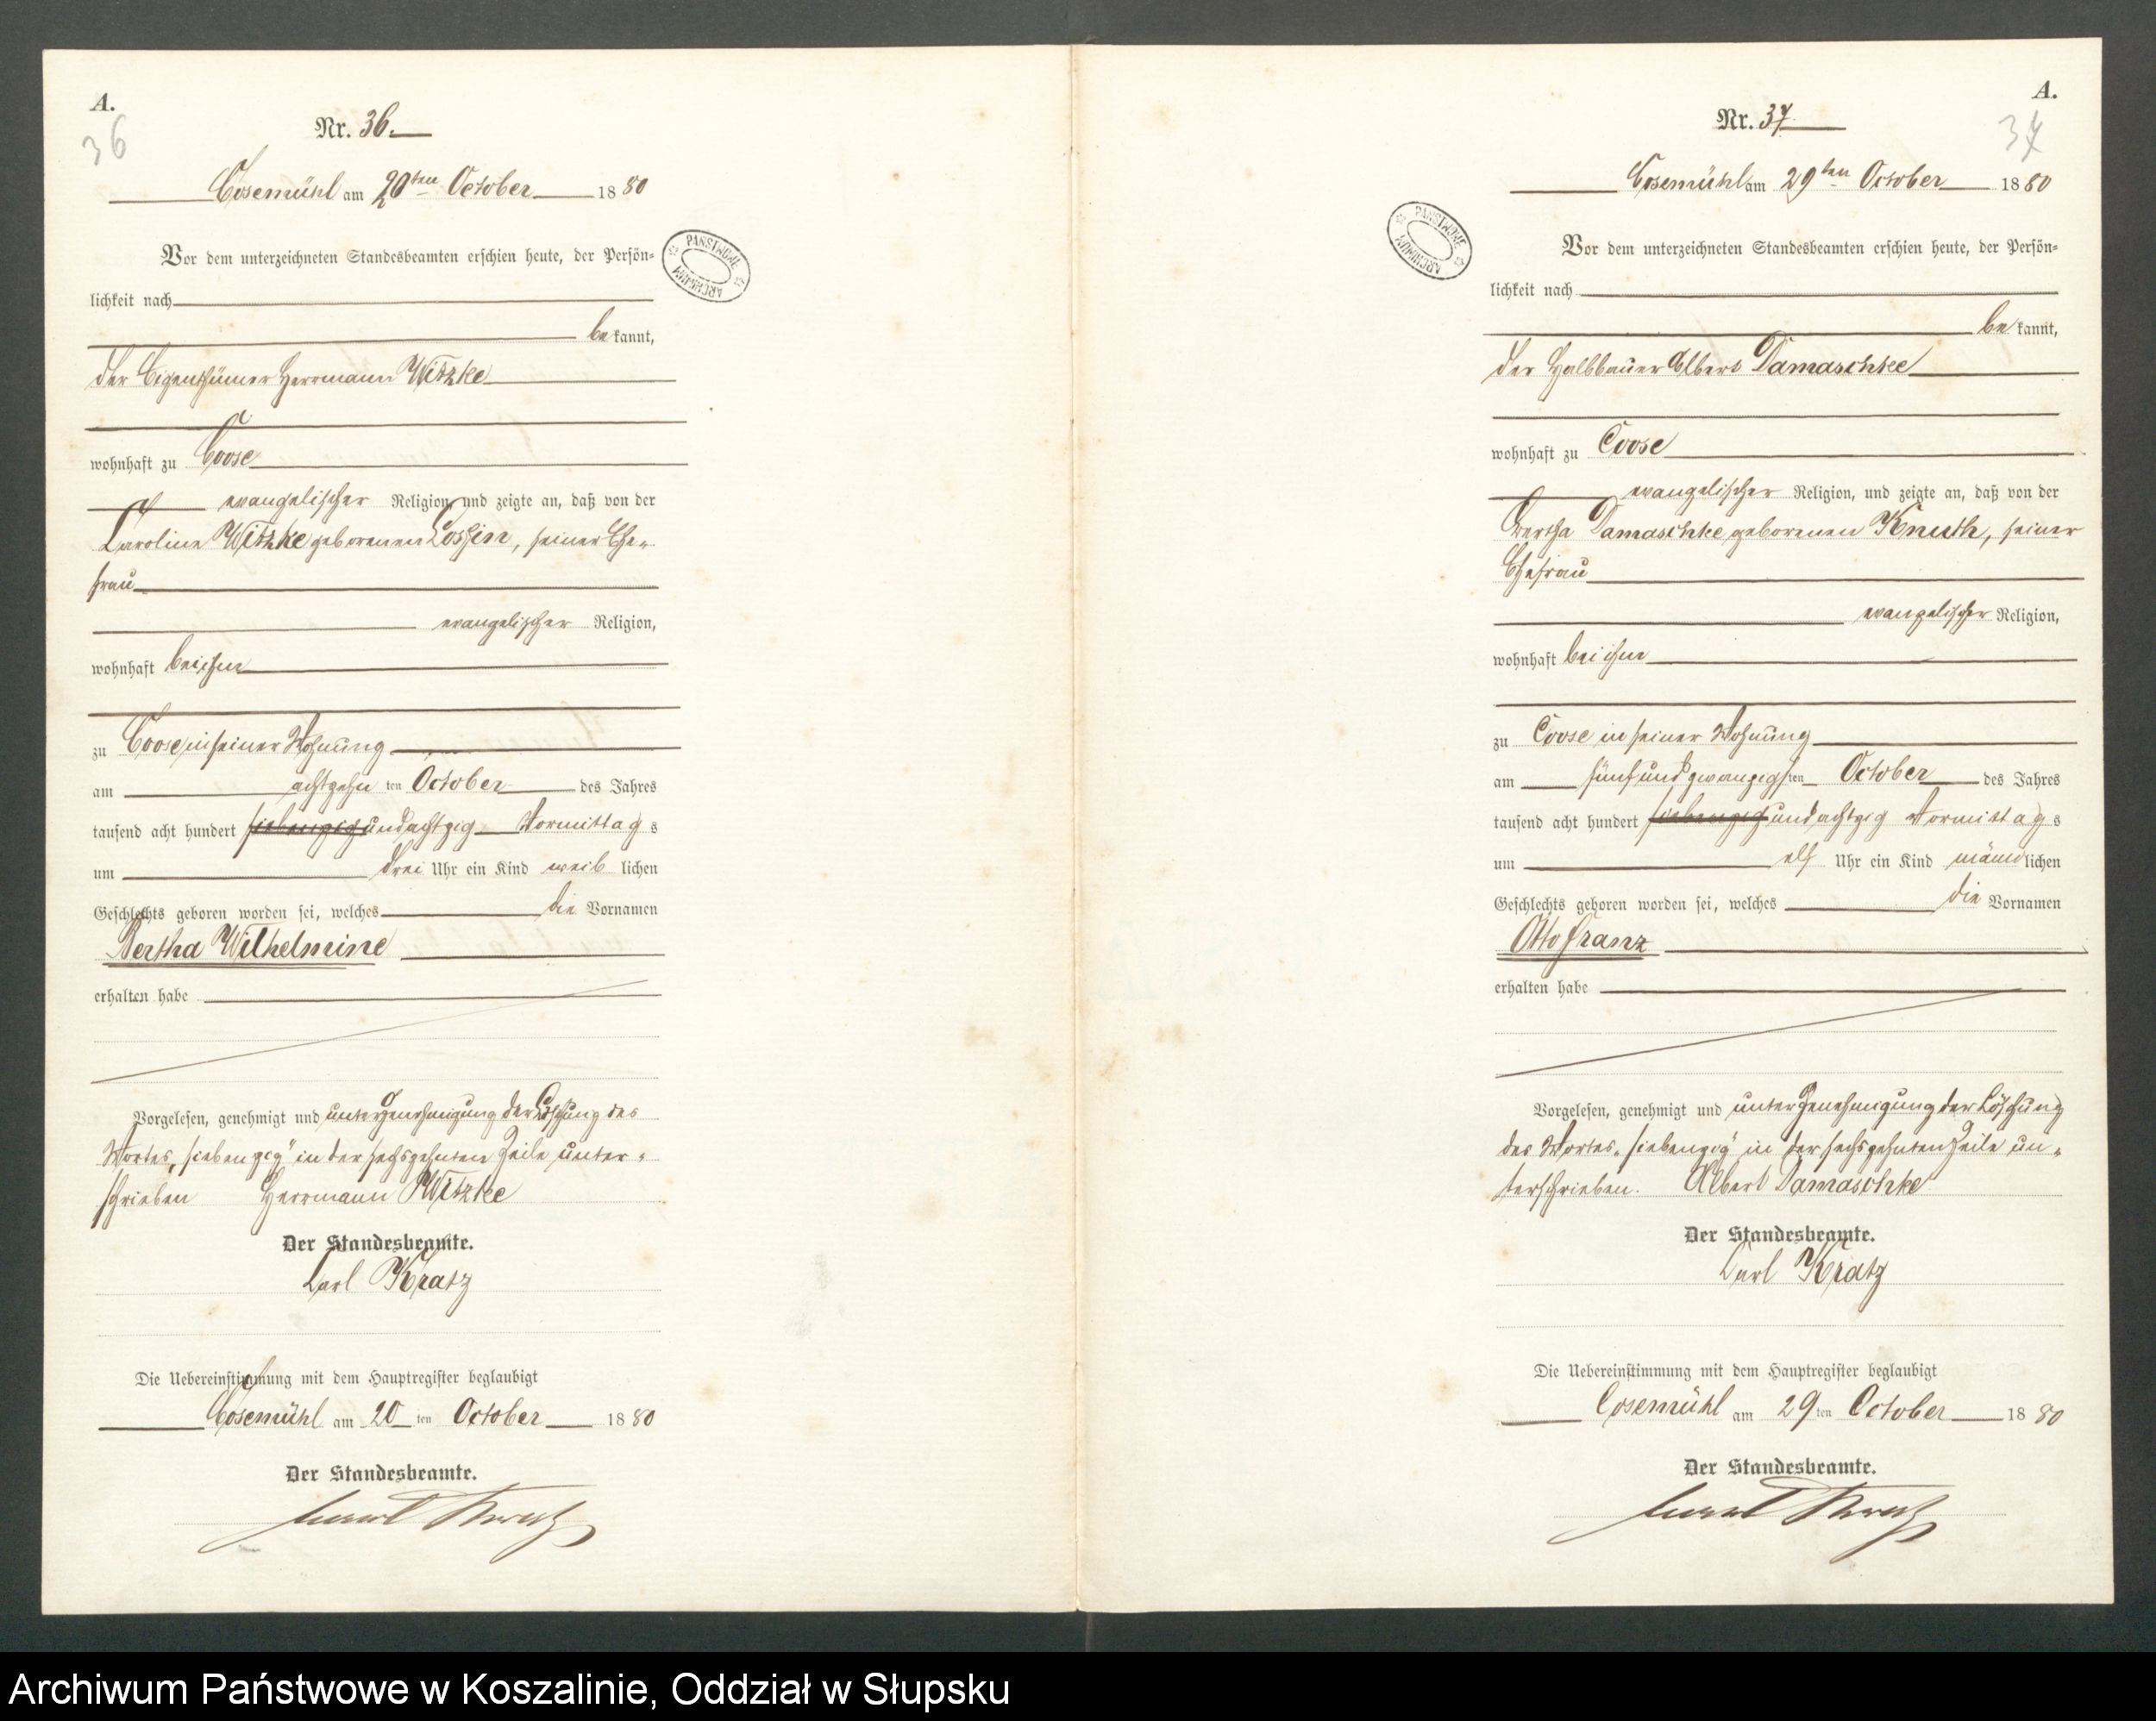 A.
36
Nr. 36.
Cosemühl am 20ten October 1880
PANSTWOWE ARCHIWUM
Vor dem unterzeichneten Standesbeamten erschien heute, der Persön=
lichkeit nach
bekannt,
der Eigenthümer Herrmann Witzke
wohnhaft zu Coose
evangelischer Religion, und zeigte an, daß von der
Caroline Witzke geborenen Lossin, seiner Ehe-
frau
evangelischer Religion,
wohnhaft bei ihm
zu Coose in seiner Wohnung
am achtzehnten October des Jahres
tausend acht hundert siebenzig undachtzig Vormittags
um drei Uhr ein Kind weiblichen
Geschlechts geboren worden sei, welches die Vornamen
Bertha Wilhelmine
erhalten habe
Vorgelesen, genehmigt und unter Genehmigung der Löschung des
Wortes „siebenzig" in der sechszehnten Zeile unter-
schrieben Herrmann Witzke
Der Standesbeamte.
Carl Kratz
Die Uebereinstimmung mit dem Hauptregister beglaubigt
Cosemühl am 20ten October 1880
Der Standesbeamte.
Carl Kratz
A.
37
Nr. 37
Cosemühl am 29ten October 1880
PANSTWOWE ARCHIWUM
Vor dem unterzeichneten Standesbeamten erschien heute, der Persön=
lichkeit nach
bekannt,
der Halbbauer Albert Damaschke
wohnhaft zu Coose
evangelischer Religion, und zeigte an, daß von der
Bertha Damaschke geborenen Knuth, seiner
Ehefrau
evangelischer Religion,
wohnhaft bei ihm
zu Coose in seiner Wohnung
am fünfundzwanzigsten October des Jahres
tausend acht hundert siebenzig undachtzig Vormittags
um elf Uhr ein Kind männlichen
Geschlechts geboren worden sei, welches die Vornamen
Otto Franz
erhalten habe
Vorgelesen, genehmigt und unter Genehmigung der Löschung
des Wortes „siebenzig" in der sechszehnten Zeile un-
terschrieben. Albert Damaschke
Der Standesbeamte.
Carl Kratz
Die Uebereinstimmung mit dem Hauptregister beglaubigt
Cosemühl am 29ten October 1880
Der Standesbeamte.
Carl Kratz
Archiwum Państwowe w Koszalinie, Oddział w Słupsku